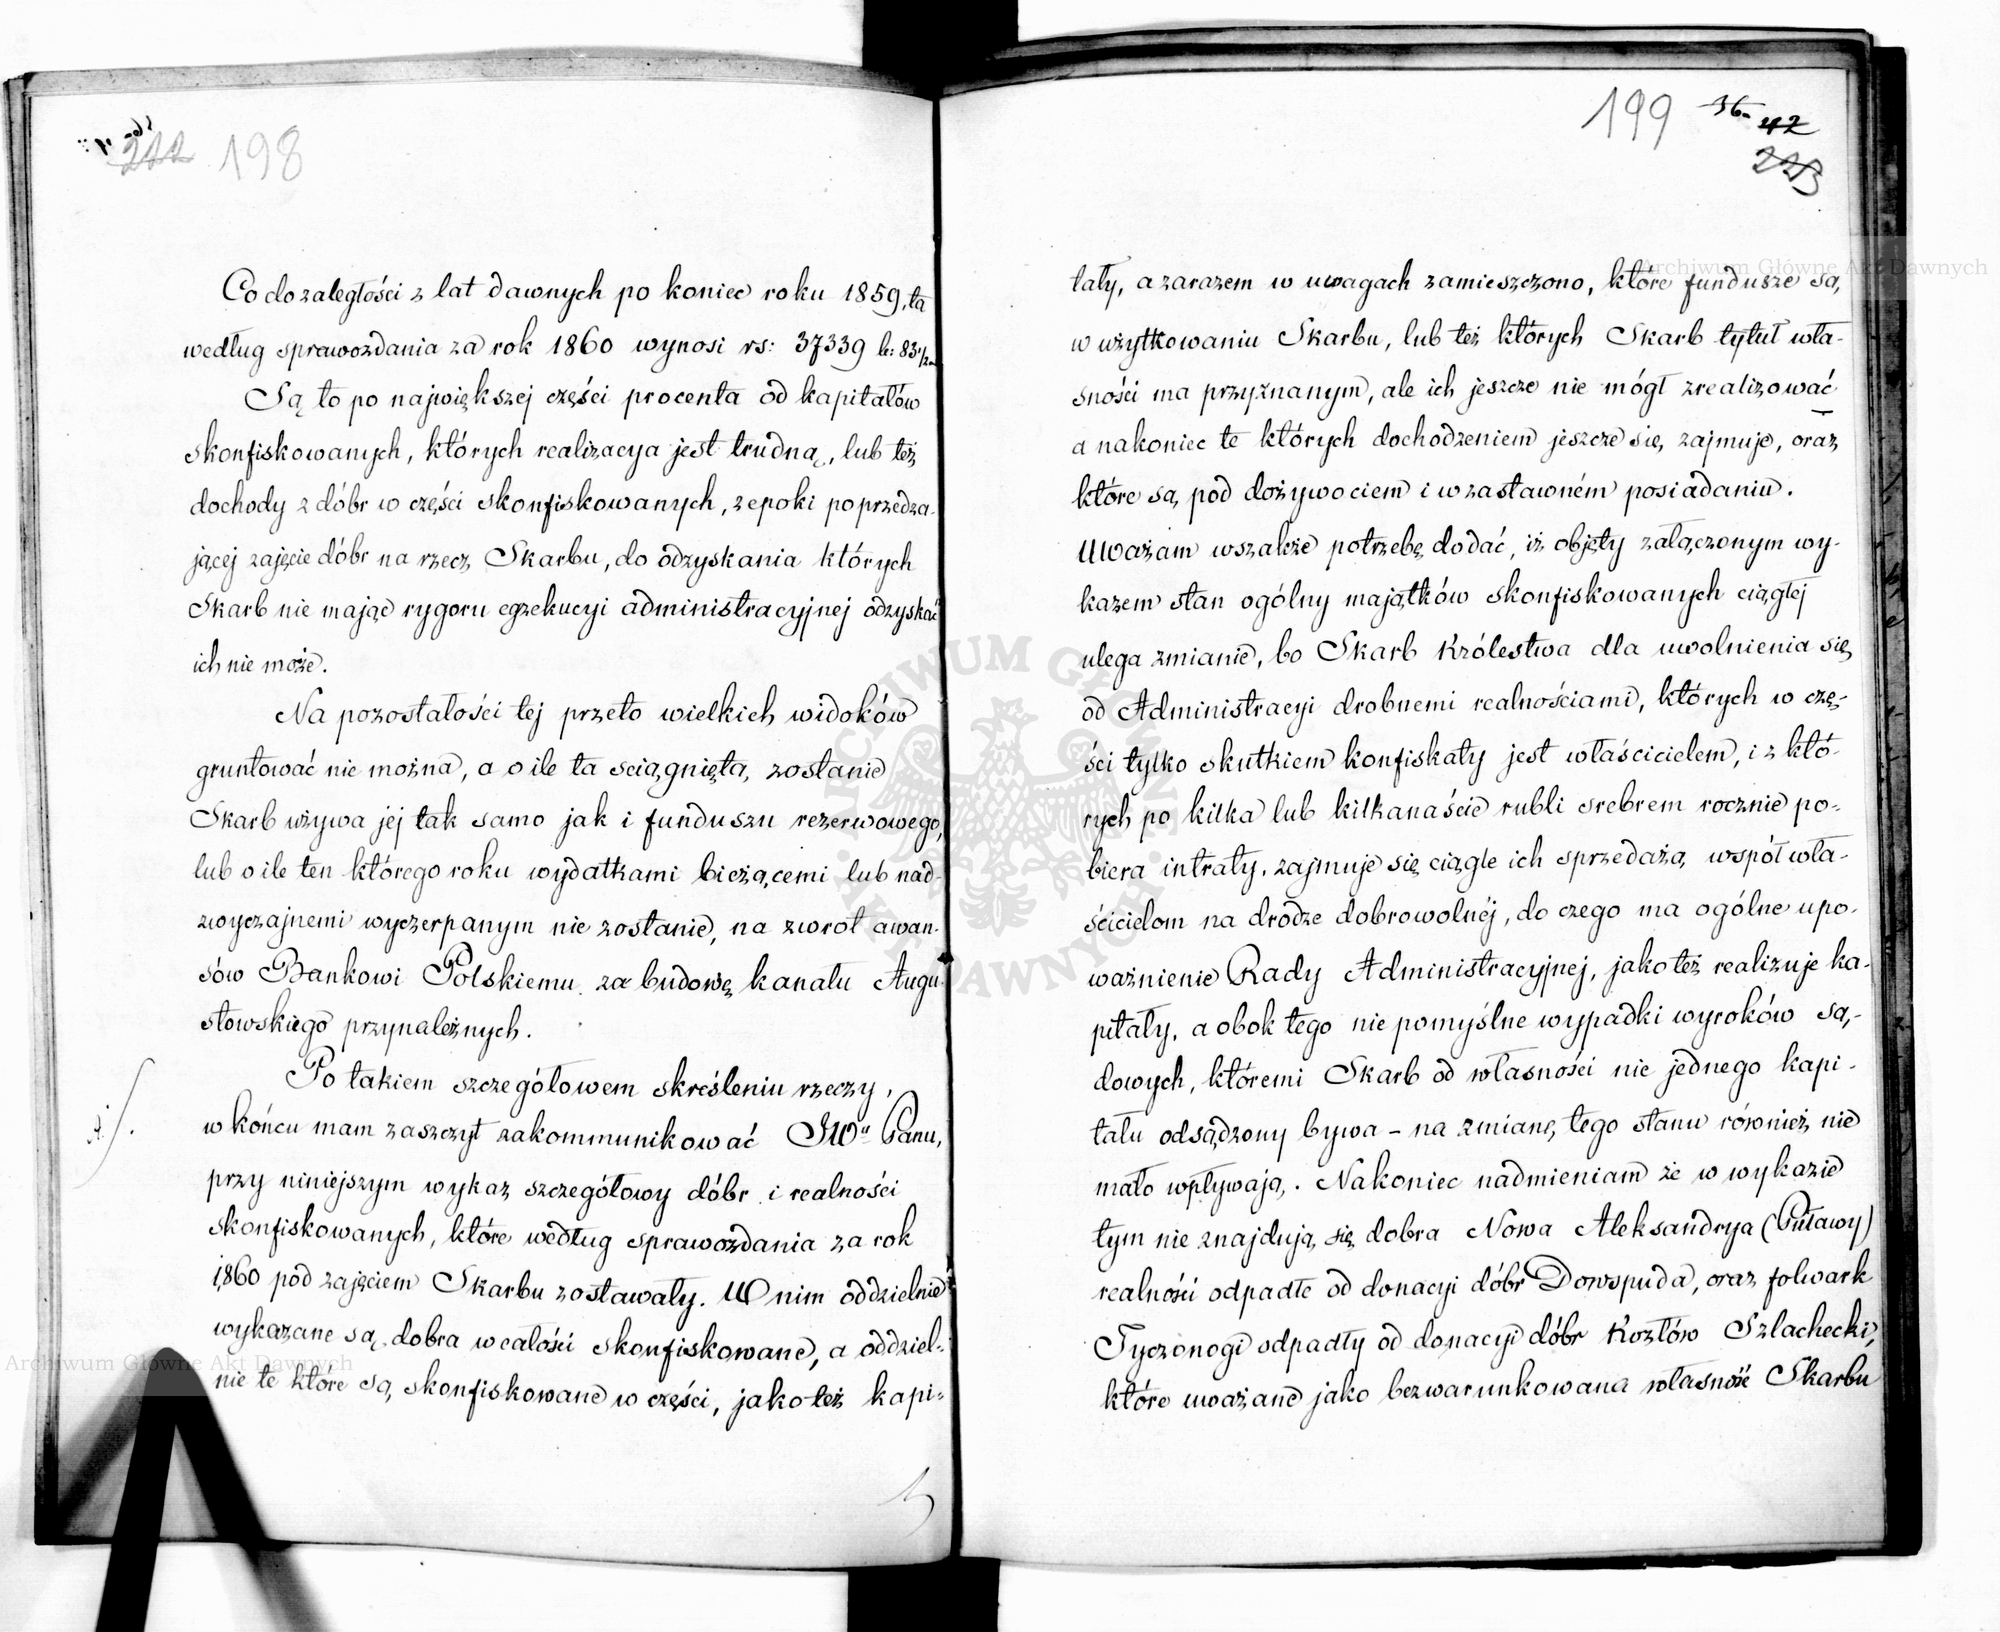 198
Co do zaległości z lat dawnych po koniec roku 1859, ta
według sprawozdania za rok 1860 wynosi rs: 37339 k: 83 1/2
Są to po największej części procenta od kapitałów
skonfiskowanych, których realizacya jest trudną, lub też
dochody z dóbr w części skonfiskowanych, z epoki poprzedza-
jącej zajęcie dóbr na rzecz Skarbu, do odzyskania których
Skarb nie mając rygoru egzekucyi administracyjnej odzyskać
ich nie może.
Na pozostałości tej przeto wielkich widoków
gruntować nie można, a o ile ta ściągniętą zostanie
Skarb używa jej tak samo jak i funduszu rezerwowego,
lub o ile ten którego roku wydatkami bieżącemi lub nad-
zwyczajnemi wyczerpanym nie zostanie, na zwrot awan-
sów Bankowi Polskiemu za budowę kanału Augu-
stowskiego przynależnych.
Po takiem szczegółowem skreśleniu rzeczy,
w końcu mam zaszczyt zakommunikować JWu Panu,
przy niniejszym wykaz szczegółowy dóbr i realności
skonfiskowanych, które według sprawozdania za rok
1860 pod zajęciem Skarbu zostawały. W nim oddzielnie
wykazane są dobra w całości skonfiskowane, a oddziel-
nie te które są skonfiskowane w części, jako też kapi-
199 42
223
tały, a zarazem w uwagach zamieszczono, które fundusze są
w użytkowaniu Skarbu, lub też których Skarb tytuł wła-
sności ma przyznanym, ale ich jeszcze nie mógł zrealizować
a nakoniec te których dochodzeniem jeszcze się zajmuje, oraz
które są pod dożywociem i w zastawném posiadaniu.
Uważam wszakże potrzebę dodać, iż objęty załączonym wy-
kazem stan ogólny majątków skonfiskowanych ciągłej
ulega zmianie, bo Skarb Królestwa dla uwolnienia się
od Administracyi drobnemi realnościami, których w czę-
ści tylko skutkiem konfiskaty jest właścicielem, i z któ-
rych po kilka lub kilkanaście rubli srebrem rocznie po-
biera intraty, zajmuje się ciągle ich sprzedażą współwła-
ścicielom na drodze dobrowolnéj, do czego ma ogólne upo-
ważnienie Rady Administracyjnej, jako też realizuje ka-
pitały, a obok tego nie pomyślne wypadki wyroków są-
dowych, któremi Skarb od własności nie jednego kapi-
tału odsądzony bywa – na zmianę tego stanu również nie
mało wpływają. Nakoniec nadmieniam że w wykazie
tym nie znajdują się dobra Nowa Aleksandrya (Puławy)
realności odpadłe od donacyi dóbr Dowspuda, oraz folwark
Tyczonogi odpadły od donacyi dóbr Kozłów Szlachecki,
które uważane jako bezwarunkowana własność Skarbu
ARCHIWUM GŁÓWNE AKT DAWNYCH
Archiwum Główne Akt Dawnych
Archiwum Główne Akt Dawnych